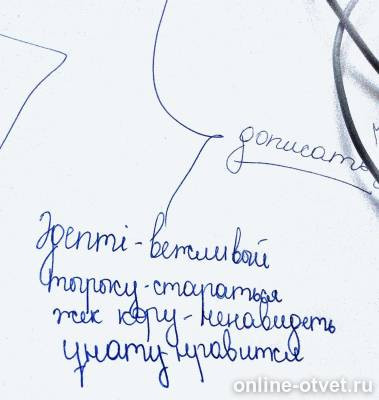 дописать
Әдепті-вежливый
тырысу-стараться
жек көру-ненавидеть
ұнату нравится
online-otvet.ru